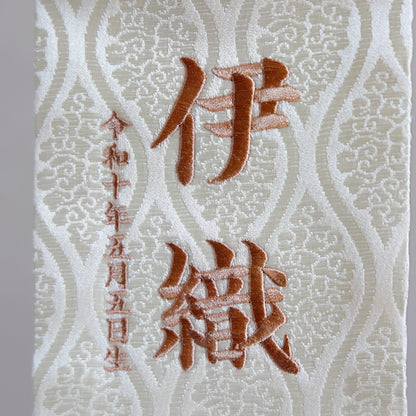 伊織
令和十年五月五日生